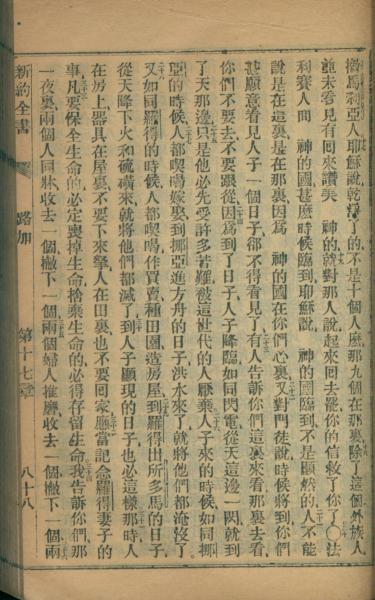 撒馬利亞人耶穌說乾淨了的不是十個人麽那九個在那裏除了這個外族人
就未看見有回來讚美　神的就對那人說起來回去罷你的信救了你了〇法
利賽人問　神的國甚麽時候臨到耶穌說　神的國臨到不是顯然的人不能
說是在這裏是在那裏因爲　神的國在你們心裏又對門徒說時候將到你們
甚願意看見人子一個日子卻不得看見了有人告訴你們這裏來看那裏去看
你們不要去不要跟從因爲到了日子人子降臨如同閃電從天這邊一閃就到
了天那邊只是他必先受許多苦難被這世代的人厭棄人子來的時候如同挪
亞的時候人都喫喝嫁娶到挪亞進方舟的日子洪水來了就將他們都淹沒了
又如同羅得的時候人都喫喝作買賣種田園造房屋到羅得出所多馬的日子
從天降下火和硫磺來就將他們都滅了到人子顯現的日子也必這樣那時人
在房上器具在屋裏不要下來拏人在田裏也不要回家應當記念羅得妻子的
事凡要保全生命的必定喪掉生命捨棄生命的必得存留生命我告訴你們那
一夜裏兩個人同牀收去一個撇下一個兩個婦人推磨收去一個撇下一個兩
新約全書
路加
第十七章
八十八